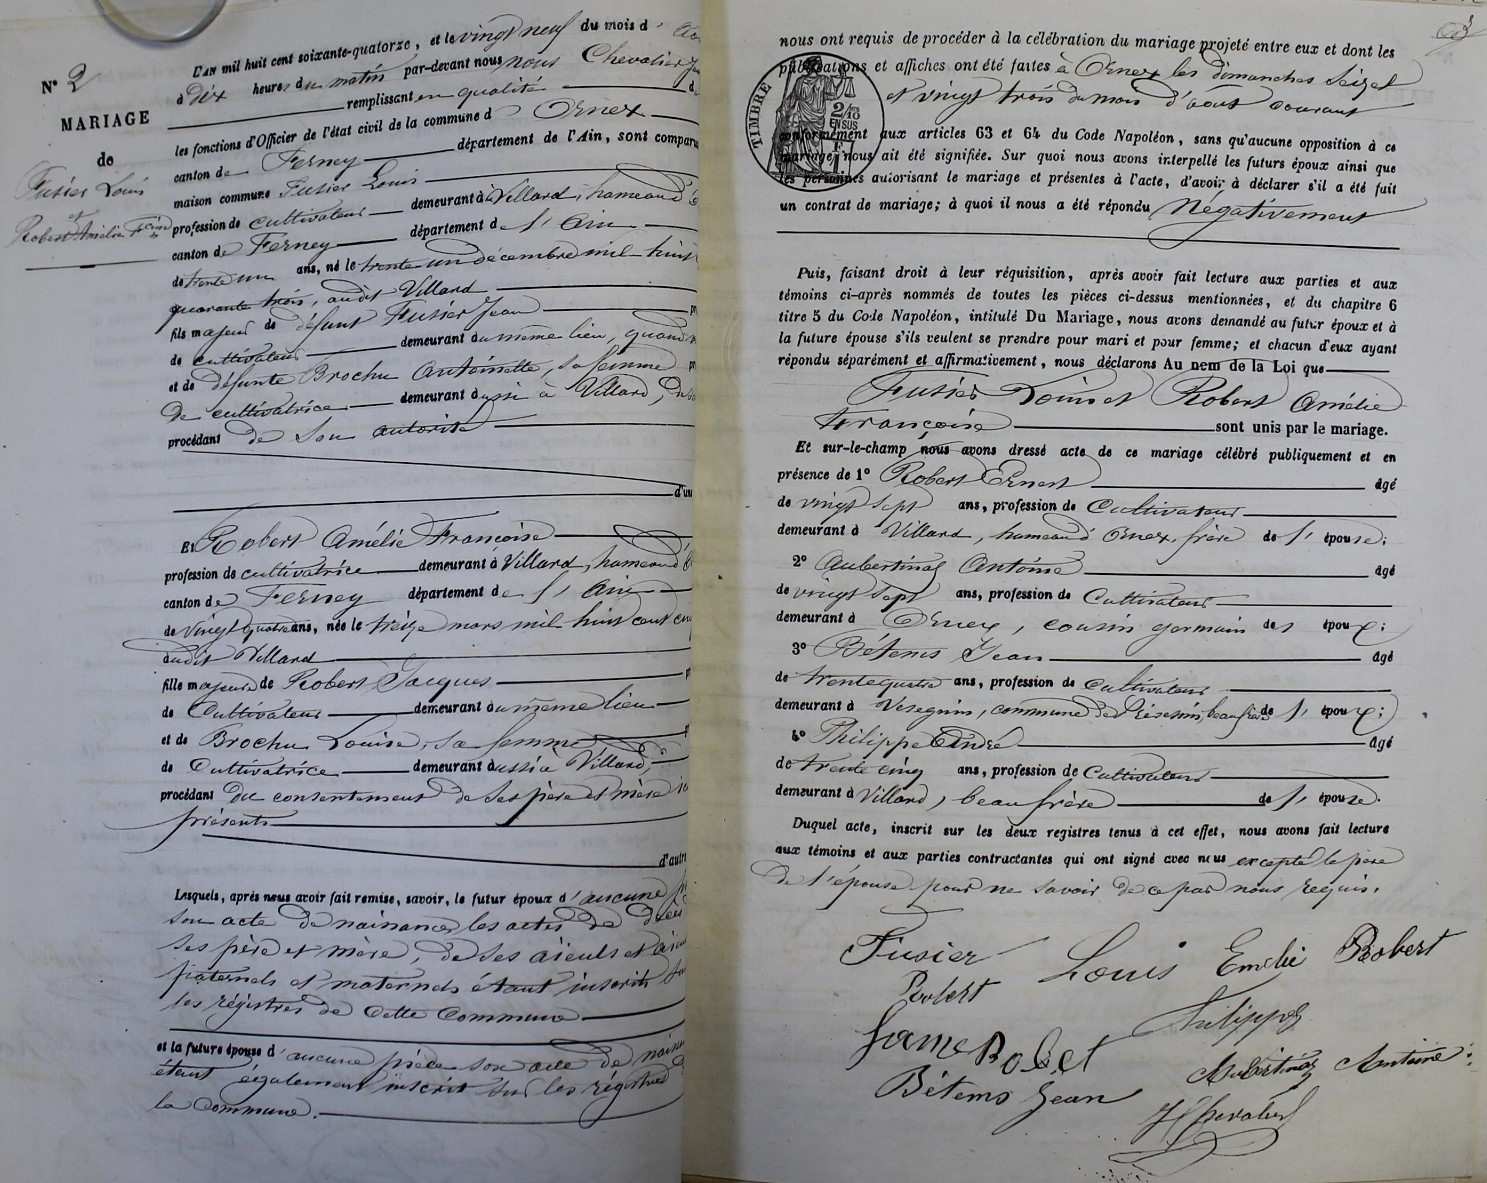 N° 2
MARIAGE
de
Fusier Louis
et
Robert Amélie Fçoise
L'AN mil huit cent soixante-quatorze, et le vingt neuf du mois d'
à dix heures du matin par-devant nous nous Chevalier
remplissant en qualité
les fonctions d'Officier de l'état civil de la commune d Ornex
canton de Ferney département de l'Ain, sont comparu
maison commune Fusier Louis
profession de cultivateur demeurant à Villard, hameau d'
canton de Ferney département de l'Ain
de trente un ans, né le trente un décembre mil huit
quarante trois, audit Villard
fils majeur de défunt Fusier Jean
de cultivateur demeurant au même lieu, quand
et de défunte Brochu Antoinette, sa femme
de cultivatrice demeurant aussi à Villard,
procédant de son autorité
d'un
Et Robert Amélie Françoise
profession de cultivatrice demeurant à Villard, hameau d'
canton de Ferney département de l'Ain
de vingt quatre ans, née le treize mars mil huit cent
audit Villard
fille majeure de Robert Jacques
de Cultivateur demeurant au même lieu
et de Brochu Louise, sa femme
de Cultivatrice demeurant aussi à Villard,
procédant du consentement de ses père et mère ici
présents
d'autre
Lesquels, après nous avoir fait remise, savoir, le futur époux d'aucune
son acte de naissance les actes de décès
ses père et mère, de ses aïeuls et
paternels et maternels étant inscrits
les régistres de cette commune
et la future épouse d'aucune pièce son acte de
étant également inscrit sur les régistres
la commune.
3
nous ont requis de procéder à la célébration du mariage projeté entre eux et dont les
publications et affiches ont été faites à Ornex les dimanches seize
et vingt trois du mois d'août courant
TIMBRE
2/10
EN SUS
conformément aux articles 63 et 64 du Code Napoléon, sans qu'aucune opposition à ce
mariage nous ait été signifiée. Sur quoi nous avons interpellé les futurs époux ainsi que
les personnes autorisant le mariage et présentes à l'acte, d'avoir à déclarer s'il a été fait
un contrat de mariage; à quoi il nous a été répondu Négativement
Puis, faisant droit à leur réquisition, après avoir fait lecture aux parties et aux
témoins ci-après nommés de toutes les pièces ci-dessus mentionnées, et du chapitre 6
titre 5 du Code Napoléon, intitulé Du Mariage, nous avons demandé au futur époux et à
la future épouse s'ils veulent se prendre pour mari et pour femme; et chacun d'eux ayant
répondu séparément et affirmativement, nous déclarons Au nom de la Loi que
Fusier Louis et Robert Amélie
Françoise sont unis par le mariage.
Et sur-le-champ nous avons dressé acte de ce mariage célébré publiquement et en
présence de 1° Robert Ernest âgé
de vingt sept ans, profession de Cultivateur
demeurant à Villard, hameau d'Ornex, frère de l'épouse;
2° Aubertinaz Antoine âgé
de vingt sept ans, profession de Cultivateur
demeurant à Ornex, cousin germain de l'époux;
3° Bétems Jean âgé
de trente quatre ans, profession de cultivateur
demeurant à Vesegnin, commune de Prévessin, beau frère de l'époux;
4° Philippe André âgé
de trente cinq ans, profession de Cultivateur
demeurant à Villard, beau frère de l'épouse.
Duquel acte, inscrit sur les deux registres tenus à cet effet, nous avons fait lecture
aux témoins et aux parties contractantes qui ont signé avec nous excepté le père
de l'épouse pour ne savoir de ce par nous requis.
Fusier Louis Emélie Robert
Robert Philippe
Bétems Jean Aubertinaz Antoine
Chevalier